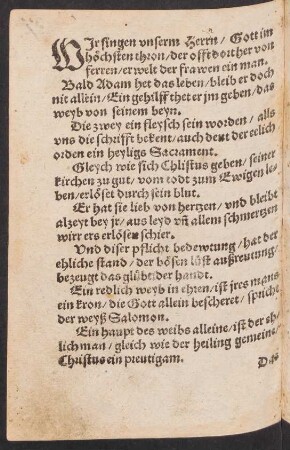 WIr singen vnserm Herrn / Gott im
höchsten thron / der offt dort her von
ferren / erwelt der frawen ein man.
Bald Adam het das leben / bleib er doch
nit allein / Ein gehilff thet er jm geben / das
weyb von seinem beyn.
Die zwey ein fleysch sein worden / alls
vns die schrifft bekent / auch deut der eelich
orden ein heyligs Sacrament.
Gleych wie sich Christus geben / seiner
kirchen zu gut / vom todt zum Ewigen le-
ben / erlöset durch sein blut.
Er hat sie lieb von hertzen / vnd bleibt
alzeyt bey jr / aus leyd vñ allem schmertzen
wirr ers erlösen schier.
Vnd diser pflicht bedewtung / hat der
ehliche stand / der bösen lüst außreutung /
bezeugt das glübt der handt.
Ein redlich weyb in ehren / ist jres mans
ein kron / die Gott allein bescheret / spricht
der weyß Salomon.
Ein haupt des weibs alleine / ist der eh-
lich man / gleich wie der heiling gemeine /
Christus ein preutigam.
Das